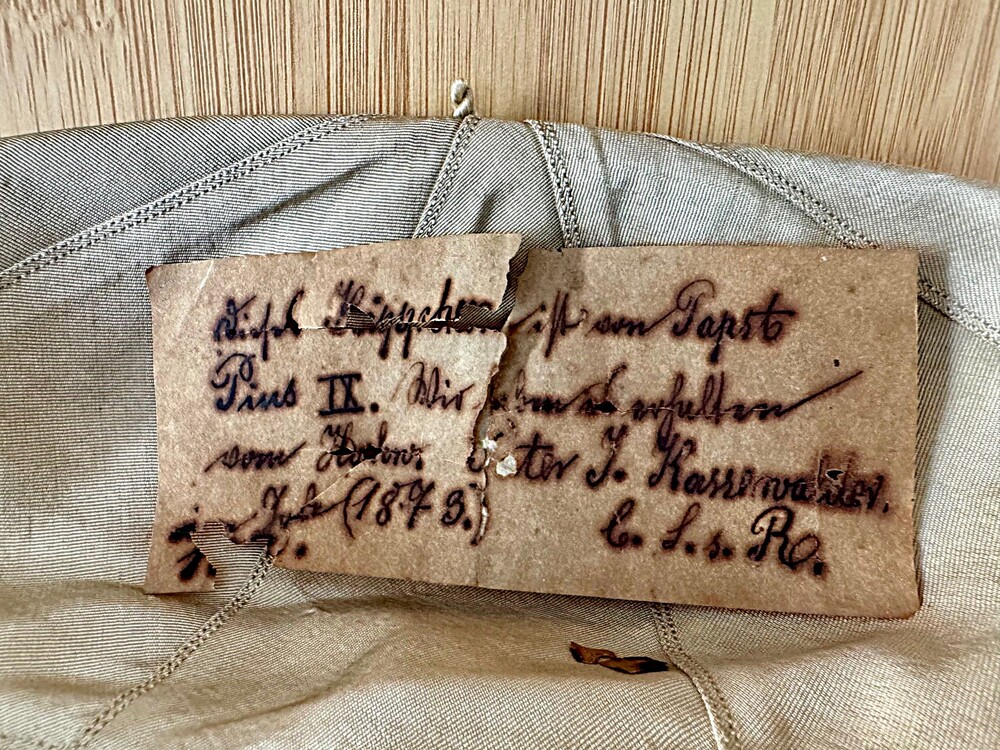 Dieses Käppchen ist von Papst
Pius IX. Wir haben es erhalten
vom Hochw. Pater J. Kassewalder.
Jahr (1873.) C. S. s. R.